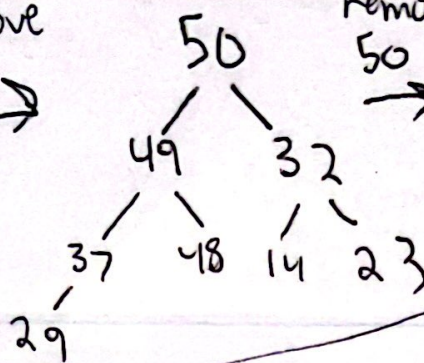 ove
50
remo
50
49 32
37 48 14 23
29